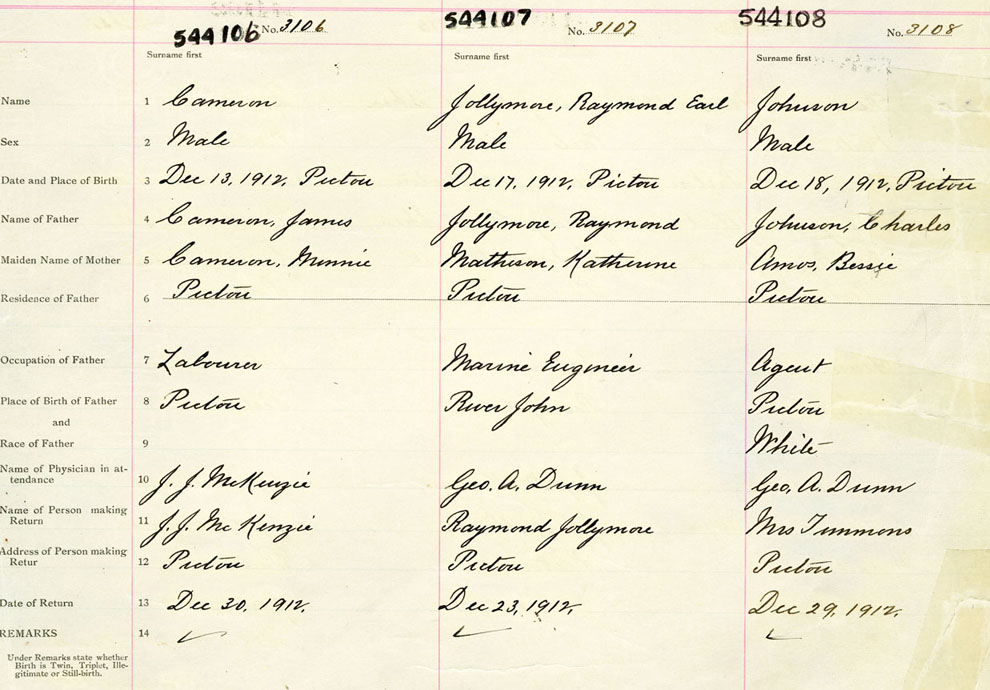 544106 No. 3106 544107 No. 3107 544108 No. 3108
Surname first Surname first Surname first
Name 1 Cameron Jollymore, Raymond Earl Johnson
Sex 2 Male Male Male
Date and Place of Birth 3 Dec 13, 1912, Pictou Dec 17, 1912, Pictou Dec 18, 1912, Pictou
Name of Father 4 Cameron, James Jollymore, Raymond Johnson, Charles
Maiden Name of Mother 5 Cameron, Minnie Matheson, Katherine Amos, Bessie
Residence of Father 6 Pictou Pictou Pictou
Occupation of Father 7 Labourer Marine Engineer Agent
Place of Birth of Father 8 Pictou River John Pictou
and
Race of Father 9 White
Name of Physician in at-
tendance 10 J. J. McKenzie Geo. A. Dunn Geo. A. Dunn
Name of Person making
Return 11 J. J. McKenzie Raymond Jollymore Mrs Timmons
Address of Person making
Retur 12 Pictou Pictou Pictou
Date of Return 13 Dec 30, 1912. Dec 23, 1912. Dec 29, 1912.
REMARKS 14 ✓ ✓ ✓
Under Remarks state whether
Birth is Twin, Triplet, Ille-
gitimate or Still-birth.